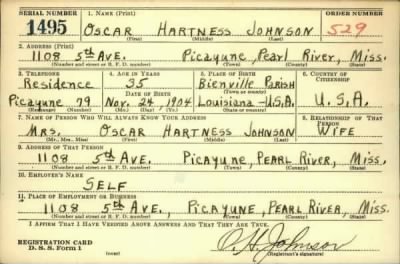 SERIAL NUMBER 1. NAME (Print) ORDER NUMBER
1495 OSCAR HARTNESS JOHNSON 529
(First) (Middle) (Last)
2. ADDRESS (Print)
1108 5th AVE. PICAYUNE, PEARL RIVER, MISS.
(Number and street or R. F. D. number) (Town) (County) (State)
3. TELEPHONE 4. AGE IN YEARS 5. PLACE OF BIRTH 6. COUNTRY OF CITIZENSHIP
Residence 35 Bienville Parish
DATE OF BIRTH (Town or county)
Picayune 79 Nov. 24, 1904 Louisiana-U.S.A. U.S.A.
(Exchange) (Number) (Mo.) (Day) (Yr.) (State or country)
7. NAME OF PERSON WHO WILL ALWAYS KNOW YOUR ADDRESS 8. RELATIONSHIP OF THAT PERSON
MRS. OSCAR HARTNESS JOHNSON WIFE
(Mr., Mrs., Miss) (First) (Middle) (Last)
9. ADDRESS OF THAT PERSON
1108 5th AVE. PICAYUNE, PEARL RIVER, MISS.
(Number and street or R. F. D. number) (Town) (County) (State)
10. EMPLOYER'S NAME
SELF
11. PLACE OF EMPLOYMENT OR BUSINESS
1108 5th AVE., PICAYUNE, PEARL RIVER, MISS.
(Number and street or R. F. D. number) (Town) (County) (State)
I AFFIRM THAT I HAVE VERIFIED ABOVE ANSWERS AND THAT THEY ARE TRUE.
REGISTRATION CARD
D. S. S. Form 1 (over) O. H. Johnson
(Registrant's signature)